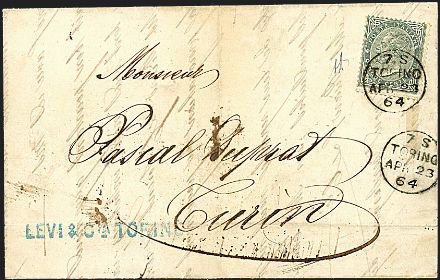 7 S
TORINO
APR 23
64
Monsieur
7 S
TORINO
APR 23
64
Pascal Duprat
Turin
LEVI & Cia TORINO